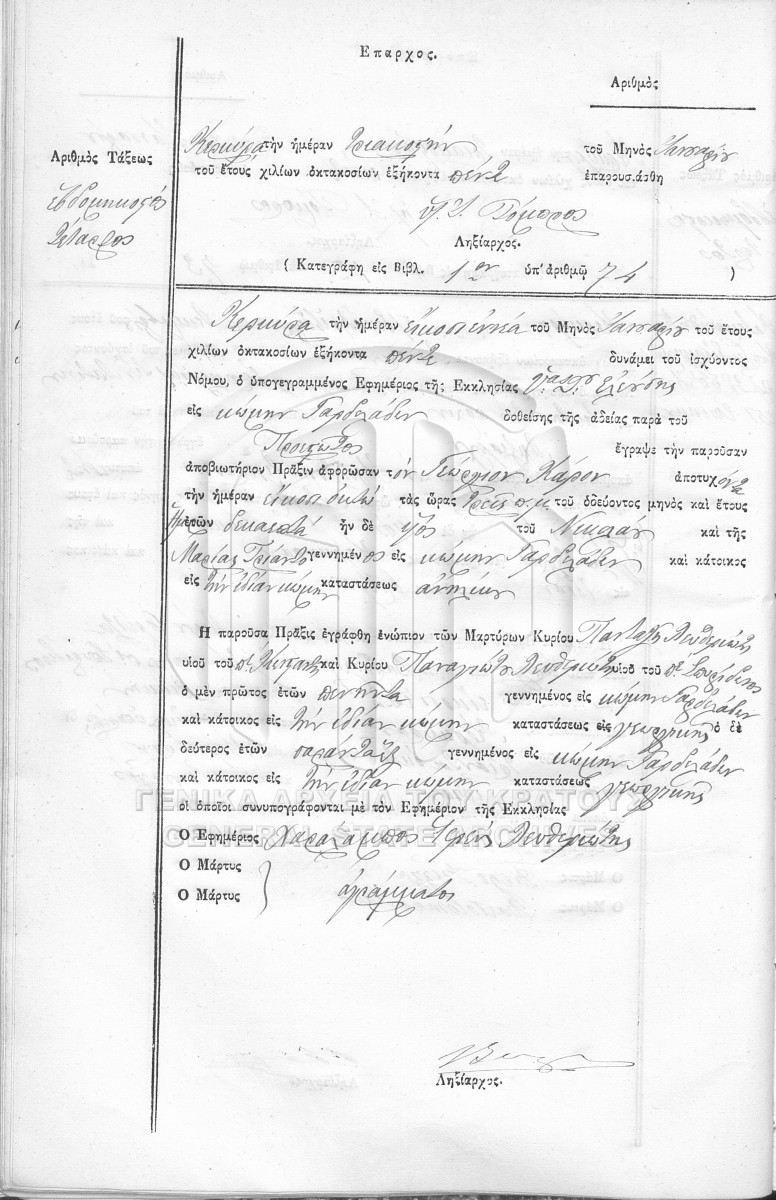 Επαρχος.
Αριθμὸς
Αριθμὸς Τάξεως
Κερκύρα τὴν ἡμέραν τριακοστήν τοῦ Μηνὸς Ἰανουαρίου
τοῦ ἔτους χιλίων ὀκτακοσίων ἑξήκοντα πέντε ἐπαρουσιάσθη
Τέταρτος
Ληξίαρχος.
( Κατεγράφη εἰς Βιβλ. 1ον ὑπ' ἀριθμῷ 74 )
Κερκύρα τὴν ἡμέραν εἰκοσιεννέα τοῦ Μηνὸς Ἰανουαρίου τοῦ ἔτους
χιλίων ὀκτακοσίων ἑξήκοντα πέντε δυνάμει τοῦ ἰσχύοντος
Νόμου, ὁ ὑπογεγραμμένος Ἐφημέριος τῆς Ἐκκλησίας
εἰς κώμην Γαρδελάδες δοθείσης τῆς ἀδείας παρὰ τοῦ
ἔγραψε τὴν παροῦσαν
ἀποβιωτήριον Πρᾶξιν ἀφορῶσαν τὸν Γεώργιον Κάρον ἀποτυχόντα
τὴν ἡμέραν εἰκοσι ὀκτώ τὰς ὥρας τρεῖς π.μ. τοῦ ὁδεύοντος μηνὸς καὶ ἔτους
Ἡμερῶν δεκαεπτά ἦν δὲ υἱός τοῦ Νικολάου καὶ τῆς
Μαρίας γεννημένος εἰς κώμην Γαρδελάδες καὶ κάτοικος
εἰς τὴν ἰδίαν κώμην καταστάσεως ἀνηλίκου
Ἡ παροῦσα Πρᾶξις ἐγράφθη ἐνώπιον τῶν Μαρτύρων Κυρίου Πανταζῆ Λευθεριώτη
υἱοῦ τοῦ καὶ Κυρίου Παναγιώτου Λευθεριώτη υἱοῦ τοῦ π.τ. Σπυρίδωνος
ὁ μὲν πρῶτος ἐτῶν πενῆντα γεννημένος εἰς κώμην Γαρδελάδες
καὶ κάτοικος εἰς τὴν ἰδίαν κώμην καταστάσεως εἰς γεωργικῆς ὁ δὲ
δεύτερος ἐτῶν σαράντα ἕξ γεννημένος εἰς κώμην Γαρδελάδες
καὶ κάτοικος εἰς τὴν ἰδίαν κώμην καταστάσεως γεωργικῆς
οἱ ὁποῖοι συνυπογράφονται μὲ τὸν Ἐφημέριον τῆς Ἐκκλησίας
Ο Ἐφημέριος Χαράλαμπος Ἱερεύς Λευθεριώτης
Ο Μάρτυς
Ο Μάρτυς ἀγράμματος
Ληξίαρχος.
ΓΕΝΙΚΑ ΑΡΧΕΙΑ ΤΟΥ ΚΡΑΤΟΥΣ
GENERAL STATE ARCHIVES